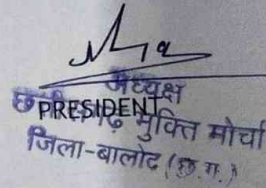 अध्यक्ष
PRESIDENT
मुक्ति मोर्चा
जिला-बालोद (छ.ग.)